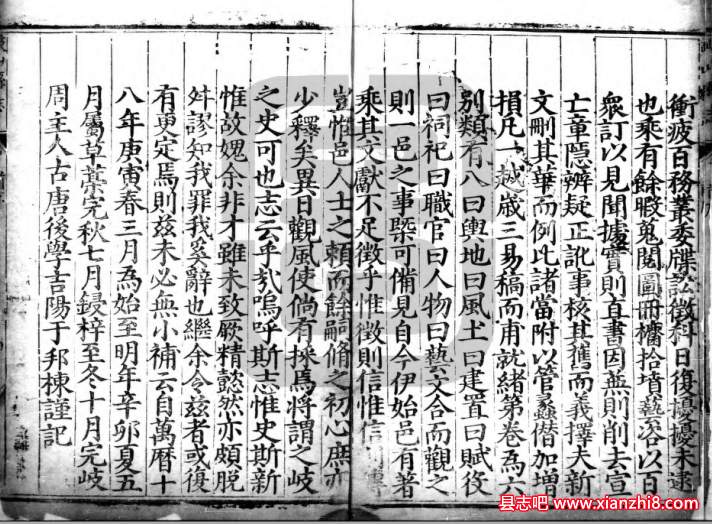 衝疲百務叢委牒訟徵科日復擾擾未遑
也乘有餘暇蒐閱圖冊檔拾墳藝咨以百
衆訂以見聞據實則直書因無則削去宣
亡章隱辨疑正訛事核其舊而義擇夫新
文刪其華而例比諸當附以管蠡僣加增
損凡一越歲三易稿而甫就緒第卷為六
別類有八曰輿地曰風土曰建置曰賦役
曰祠祀曰職官曰人物曰藝文合而觀之
則一邑之事槩可備見自今伊始邑有著
乘其文獻不足徵乎惟徵則信惟信則傳
豈惟邑人士之頼而餘嗣脩之初心庶亦
少釋矣異日觀風使倘有採焉將謂之岐
之史可也志云乎㢤嗚呼斯志惟史斯新
惟故媿余非才雖未致厥精懿然亦頗脫
舛謬知我罪我奚辭也繼余令兹者或復
有更定焉則兹未必無小補云自萬曆十
八年庚寅春三月為始至明年辛卯夏五
月屬草藳完秋七月鋟梓至冬十月完岐
周主人古唐後學吉陽于邦棟謹記
县志吧 www.xianzhi8.com